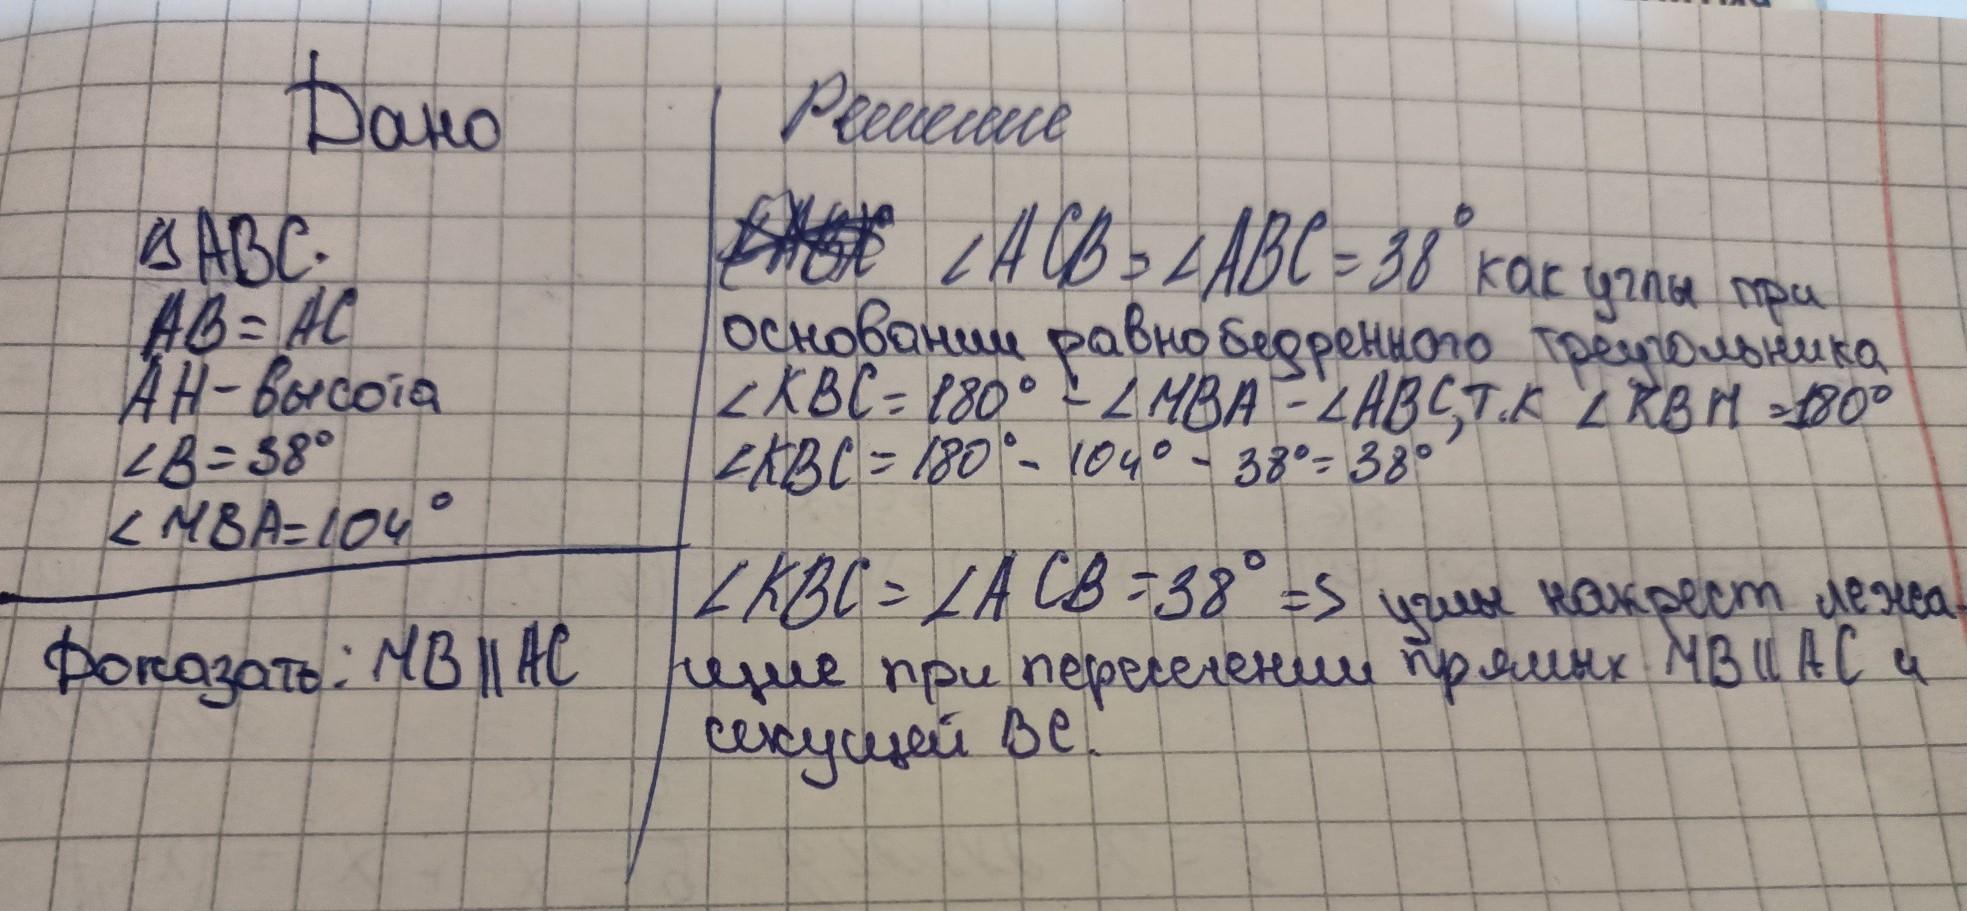 Дано
△ABC.
AB = AC
AH - высота
∠B = 38°
∠MBA = 104°
Доказать: MB || AC
Решение
∠ACB = ∠ABC = 38° как углы при
основании равнобедренного треугольника
∠KBC = 180° - ∠MBA - ∠ABC, т.к ∠KBM = 180°
∠KBC = 180° - 104° - 38° = 38°
∠KBC = ∠ACB = 38° => углы накрест лежа-
щие при пересечении прямых MB || AC и
секущей BC.